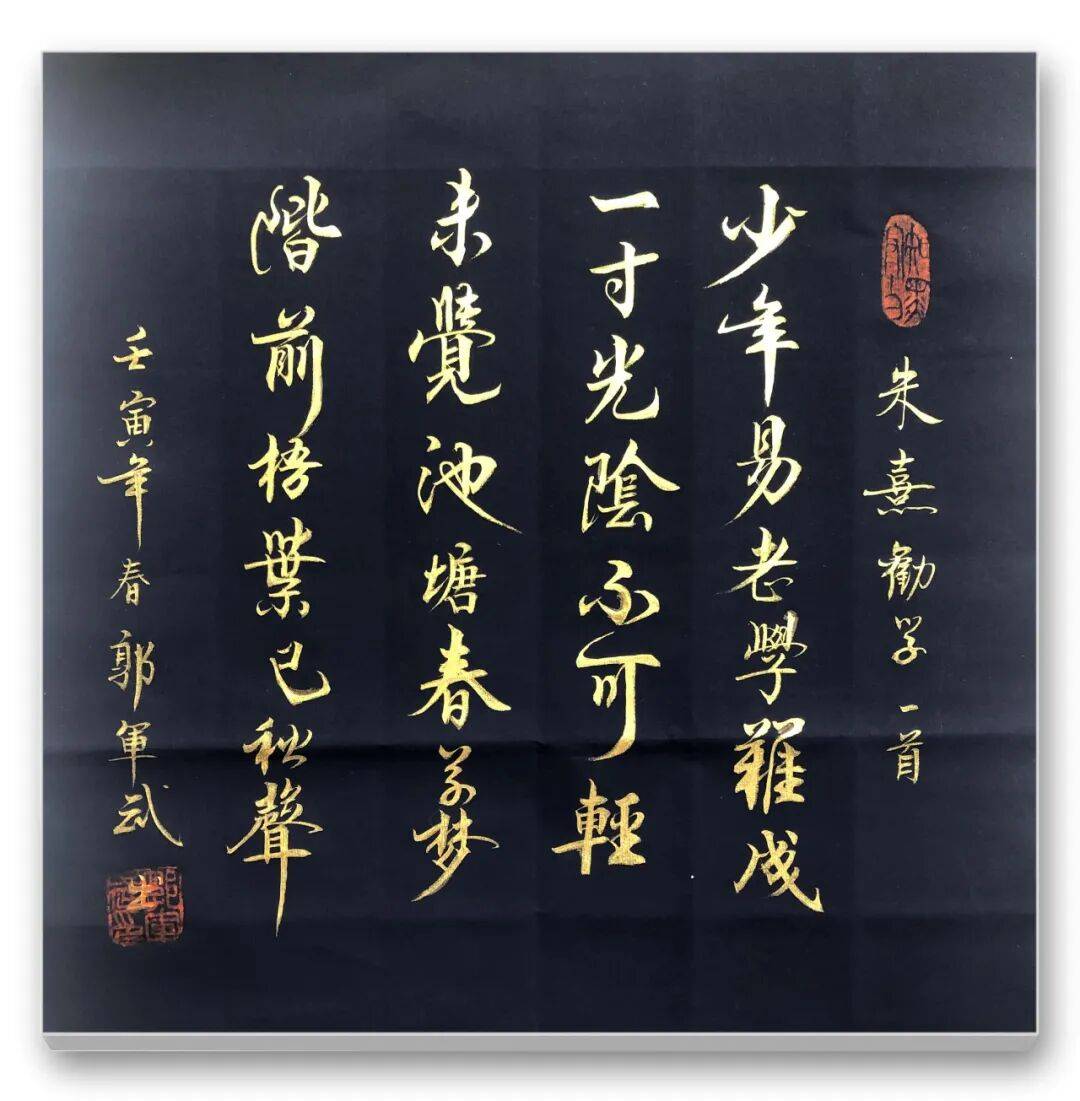 朱熹勸学一首
少年易老學難成
一寸光陰不可輕
未覺池塘春草梦
階前梧葉已秋聲
壬寅年春郭軍武